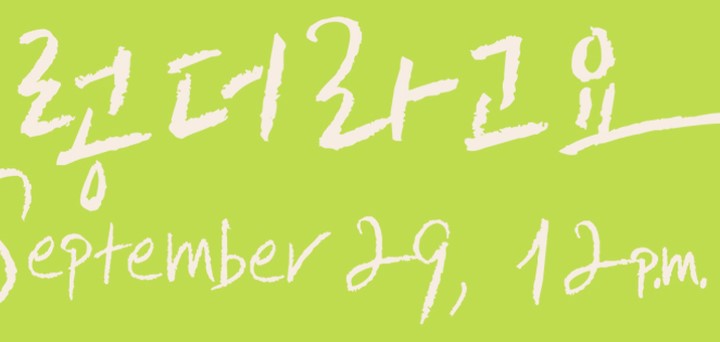 렇더라고요
September 29, 12p.m.